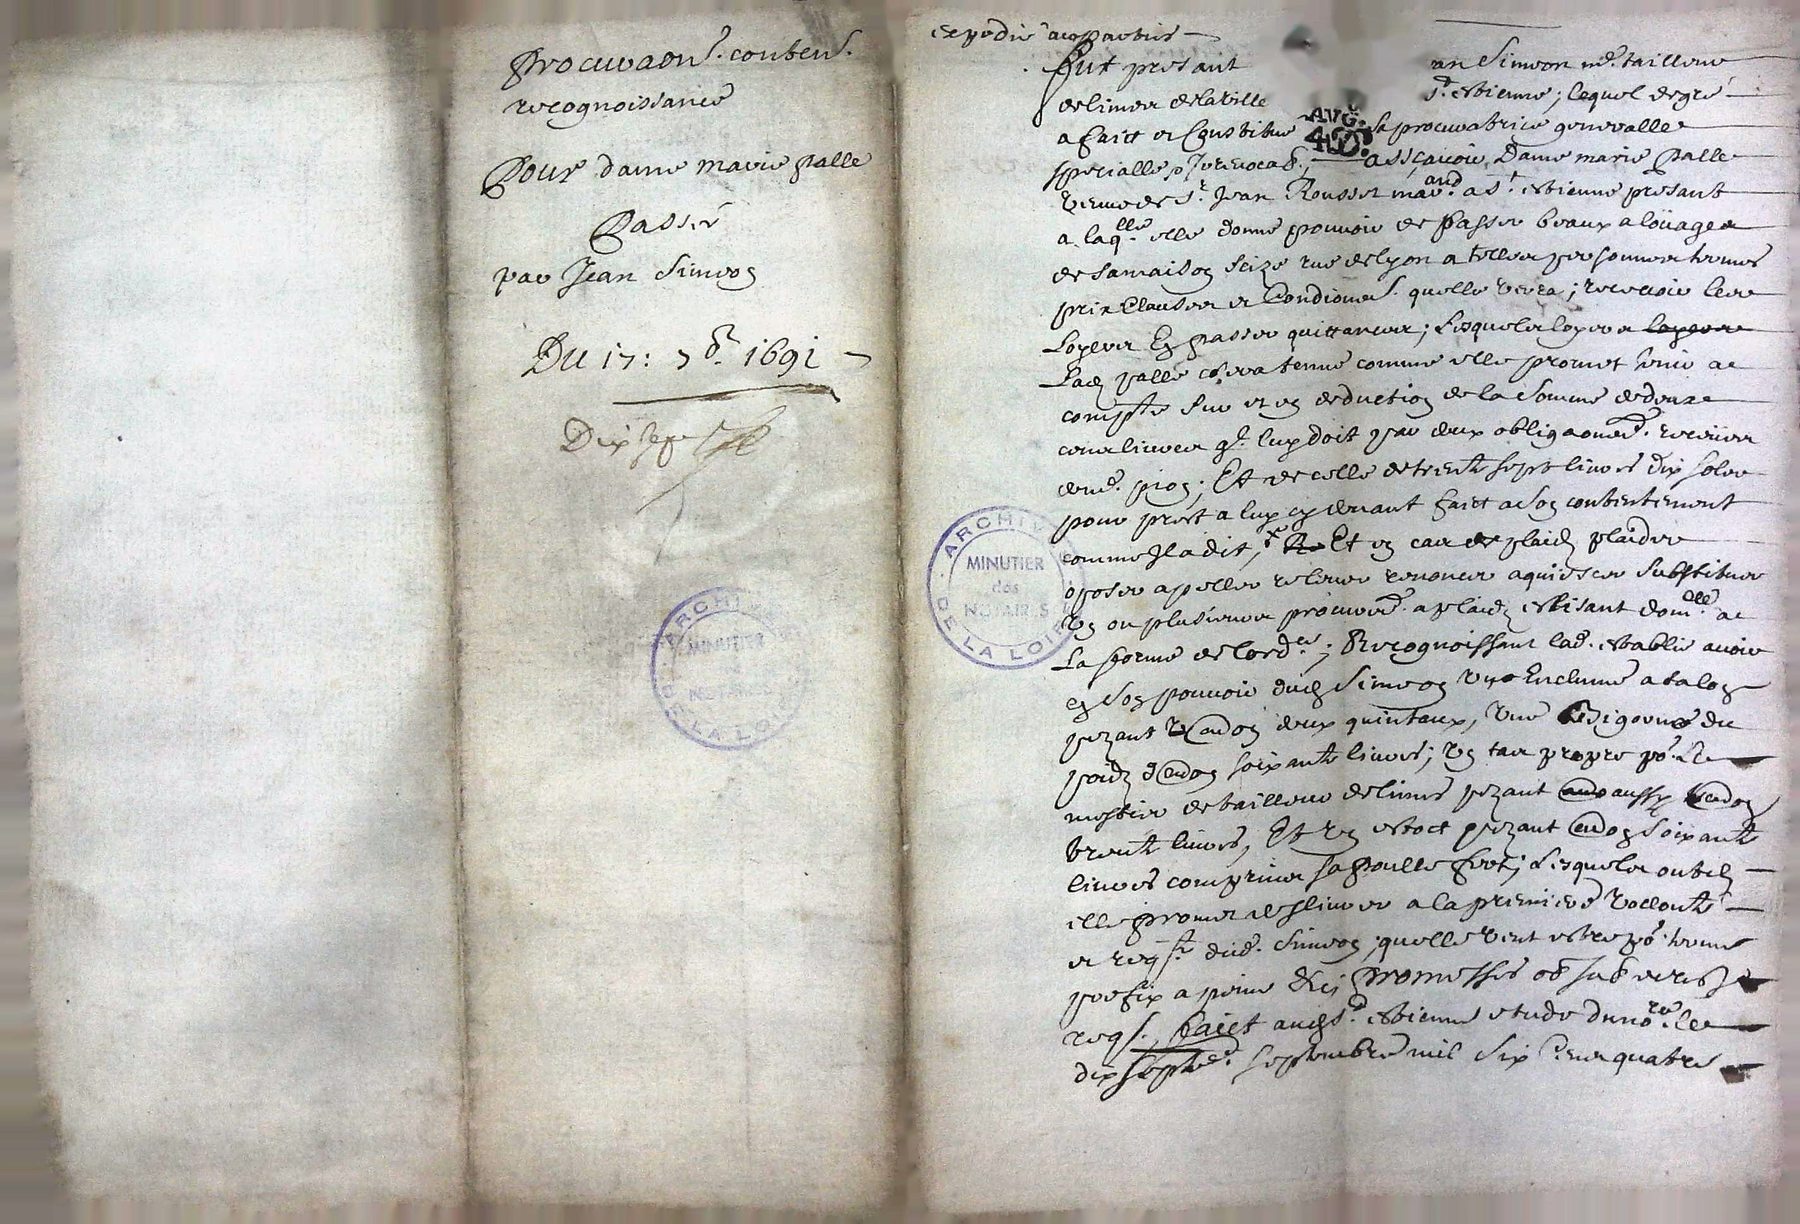 procuraon. conten.
recognoissance
Pour dame marie palle
Passé
par Jean Simeon
Du 17: 7b. 1691
Dix sep
ARCHIVES DE LA LOIRE
MINUTIER
des
NOTAIRES
expedie aux parties
Fut present an Simeon md. tailleur
de limes de la ville St. estienne; lequel de gré
a faict et Constitue sa procuratrice generalle
AUG.
specialle & Irrevocab. assçavoir Dame marie palle
veuve de Sr. Jean Rousset march and a St. estienne presant
a laqlle. elle donne pouvoir de passer beaux a loüages
de sa maison scize rue de lyon a telles personnes termes
prix Clauses et Condiones. quelle verra; recevoir les
Loyers En passer quittances; Lesquels loyers
Lad palle sera tenue comme elle promet tenir a
compte sur et en deduction de la Somme de douze
cens livres q. luy doit par deux obligaones. receües
Et de celle de trente sept livres dix sols
pour prest a luy cy devant faict a son contentement
comme Il a dit, Et en cas de plaid plaider
oposer apeller relever renoncer aquiescer substituer
un ou plusieurs procureurs. a plaid eslisant domlle. a
La forme de lord.ce; Recognoissant lad. establie avoir
en son pouvoir dud Simeon une Enclume a talon
pezant Environ deux quintaux, une Bigorne du
poid denviron soixante livres; un tas propre po. Le
mestier de tailleur de limes pezant aussy Environ
trente livres, Et un estoct pezant Environ soixante
livres comprins sa poulle fert; Lesquels outils
elle promet deslivrer a la premiere vollonté
et reqte. dud. Simeon; quelle veut estre po. terme
prefix a peine &c; promesses ob
req. faict aud St. estienne etude du nore. le
dix septe. septembre mil six Cens quatre